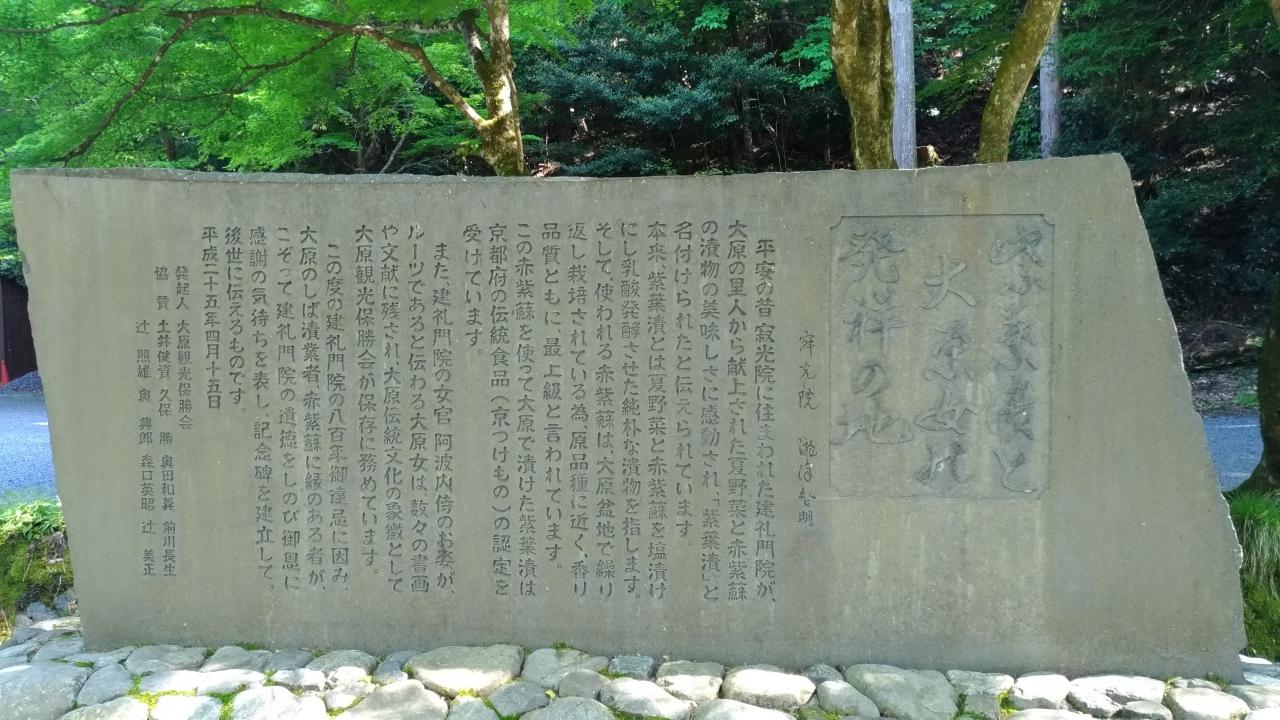 しば漬と
大原女の
発祥の地
寂光院 瀧澤智明
平安の昔 寂光院に住まわれた建礼門院が、
大原の里人から献上された夏野菜と赤紫蘇
の漬物の美味しさに感動され、「紫葉漬」と
名付けられたと伝えられています。
本来、紫葉漬とは夏野菜と赤紫蘇を塩漬け
にし乳酸発酵させた純朴な漬物を指します。
そして使われる赤紫蘇は、大原盆地で繰り
返し栽培されている為、原品種に近く、香り
品質ともに、最上級と言われています。
この赤紫蘇を使って大原で漬けた紫葉漬は
京都府の伝統食品（京つけもの）の認定を
受けています。
また、建礼門院の女官 阿波内侍のお姿が、
ルーツであると伝わる大原女は、数々の書画
や文献に残され大原伝統文化の象徴として
大原観光保勝会が保存に務めています。
この度の建礼門院の八百年御遠忌に因み、
大原のしば漬業者、赤紫蘇に縁のある者が、
こぞって建礼門院の遺徳をしのび御恩に
感謝の気持ちを表し、記念碑を建立して、
後世に伝えるものです。
平成二十五年四月十五日
発起人 大原観光保勝会
協賛 土井健資 久保 勝 奥田和義 前川長生
辻 照雄 奥 典郎 森口英昭 辻 美正